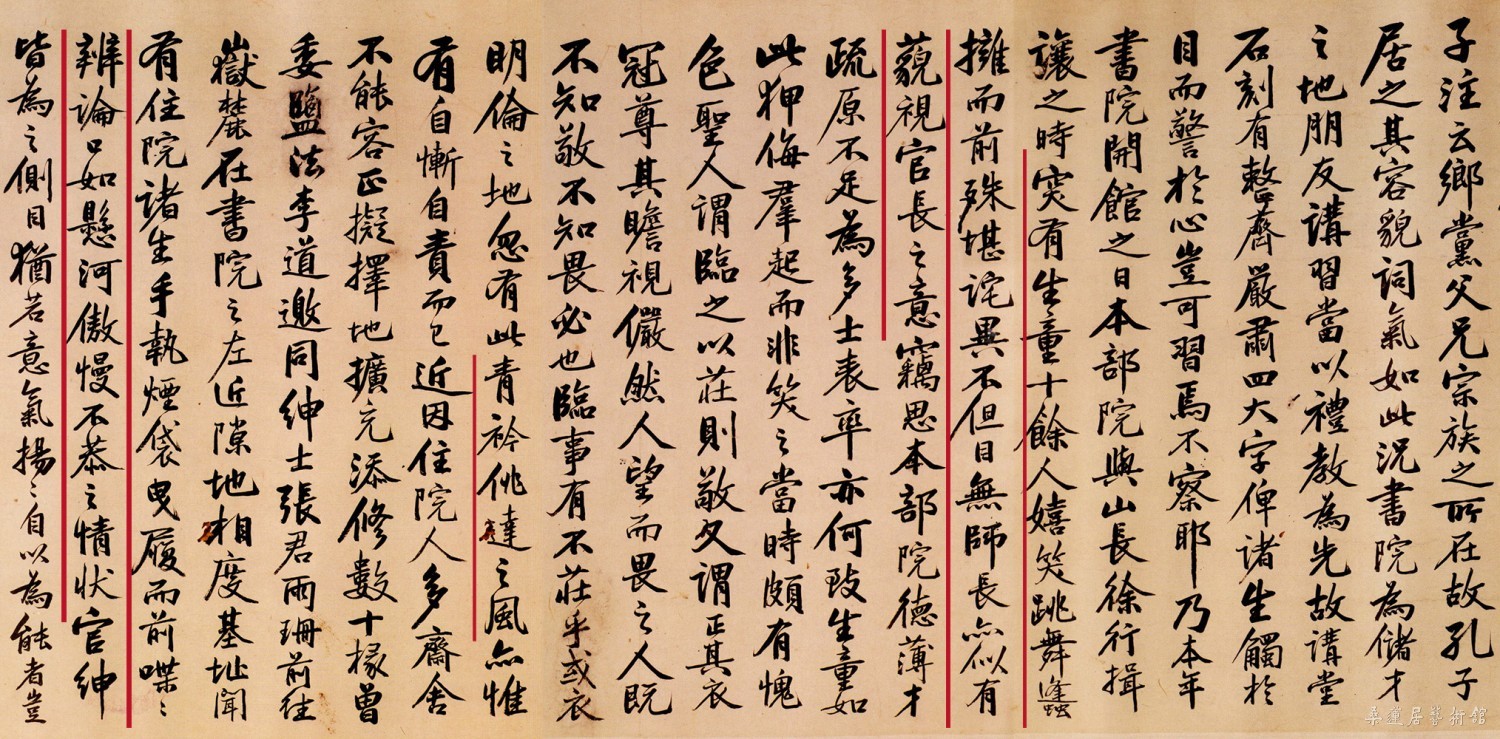 子注云鄉黨父兄宗族之所在故孔子
居之其容貌詞氣如此況書院為儲才
之地朋友講習當以禮教為先故講堂
石刻有整齊嚴肅四大字俾諸生觸於
目而警於心豈可習焉不察耶乃本年
書院開館之日本部院與山長徐行揖
讓之時突有生童十餘人嬉笑跳舞蠭
擁而前殊堪詫異不但目無師長亦似有
藐視官長之意竊思本部院德薄才
疏原不足為多士表率亦何致生童如
此狎侮羣起而非笑之當時頗有愧
色聖人謂臨之以莊則敬又謂正其衣
冠尊其瞻視儼然人望而畏之人既
不知敬不知畏必也臨事有不莊乎或衣
明倫之地忽有此青衿佻達之風亦惟
有自慚自責而已近因住院人多齋舍
不能容正擬擇地擴充添修數十椽曾
委鹽法李道邀同紳士張君雨珊前往
嶽麓在書院之左近隙地相度基址聞
有住院諸生手執煙袋曳履而前喋之
辨論口如懸河傲慢不恭之情狀官紳
皆為之側目猶若意氣揚之自以為能者豈
桑蓮居藝術館